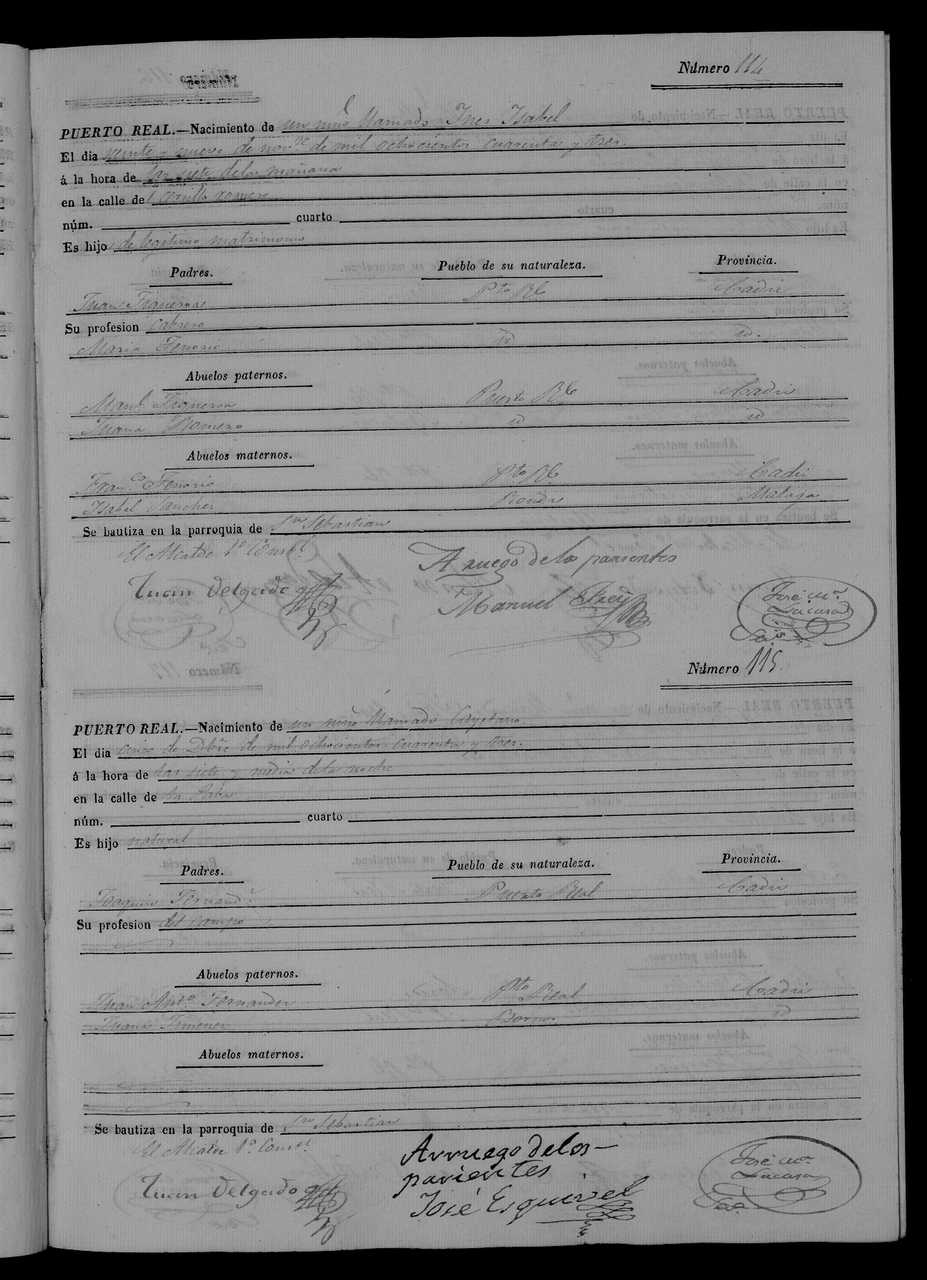 Número 114
PUERTO REAL.—Nacimiento de un niño llamado Ines Isabel
El dia veinte y nueve de novre de mil ochocientos cuarenta y tres.
á la hora de las siete de la mañana
en la calle de
núm. cuarto
Es hijo de legitimo matrimonio
Padres. Pueblo de su naturaleza. Provincia.
Juan Figueroa Pto Rl Cadiz
Su profesion Cabrero
Maria Tenorio id id.
Abuelos paternos.
Manl Figueroa Puerto Rl Cadiz
Juana Romero id id
Abuelos maternos.
Franco Tenorio Pto Rl Cadiz
Isabel Sanchez Ronda Malaga
Se bautiza en la parroquia de Sn Sebastian
El Alcalde 1º Const.
A ruego de los parientes
Juan Delgado
Manuel
José Mª
Lacasa
Srio
Número 115.
PUERTO REAL.—Nacimiento de un niño llamado Cayetano.
El dia cinco de Dbre de mil ochocientos cuarenta y tres.
á la hora de las siete y media de la noche
en la calle de la
núm. cuarto
Es hijo natural
Padres. Pueblo de su naturaleza. Provincia.
Joaquin Fernandz Puerto Real Cadiz
Su profesion del campo
Abuelos paternos.
Juan Anto Fernandez Pto Real Cadiz
Juana Jimenez Bornos id
Abuelos maternos.
Se bautiza en la parroquia de Sn Sebastian
El Alcalde 1º Const.
Arruego de los
parientes
José Esquivel
Juan Delgado
José Mª
Lacasa
Srio